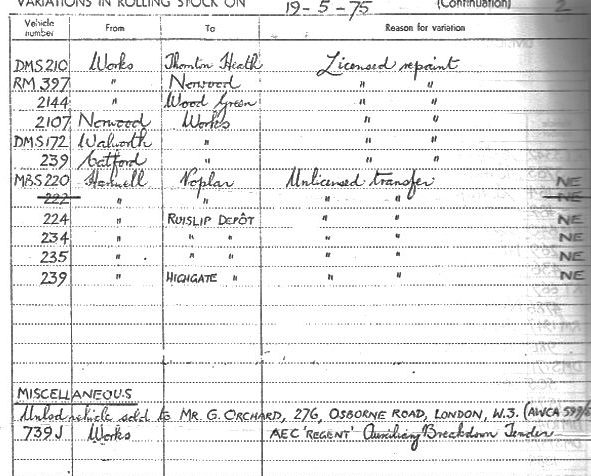 VARIATIONS IN ROLLING STOCK ON 19-5-75 (Continuation) 2
Vehicle number From To Reason for variation
DMS 210 Works Thornton Heath Licensed repaint
RM 397 " Norwood " "
2144 " Wood Green " "
2107 Norwood Works " "
DMS 172 Walworth " " "
239 Catford " " "
MBS 220 Hanwell Poplar Unlicensed transfer NE
222 " " " " NE
224 " RUISLIP DEPÔT " " NE
234 " " " " " NE
235 " " " " " NE
239 " HIGHGATE " " " NE
MISCELLANEOUS
Unlsd vehicle sold to MR. G. ORCHARD, 27G, OSBORNE ROAD, LONDON, W.3. (AWCA 599/5
739J Works AEC 'REGENT' Auxiliary Breakdown Tender